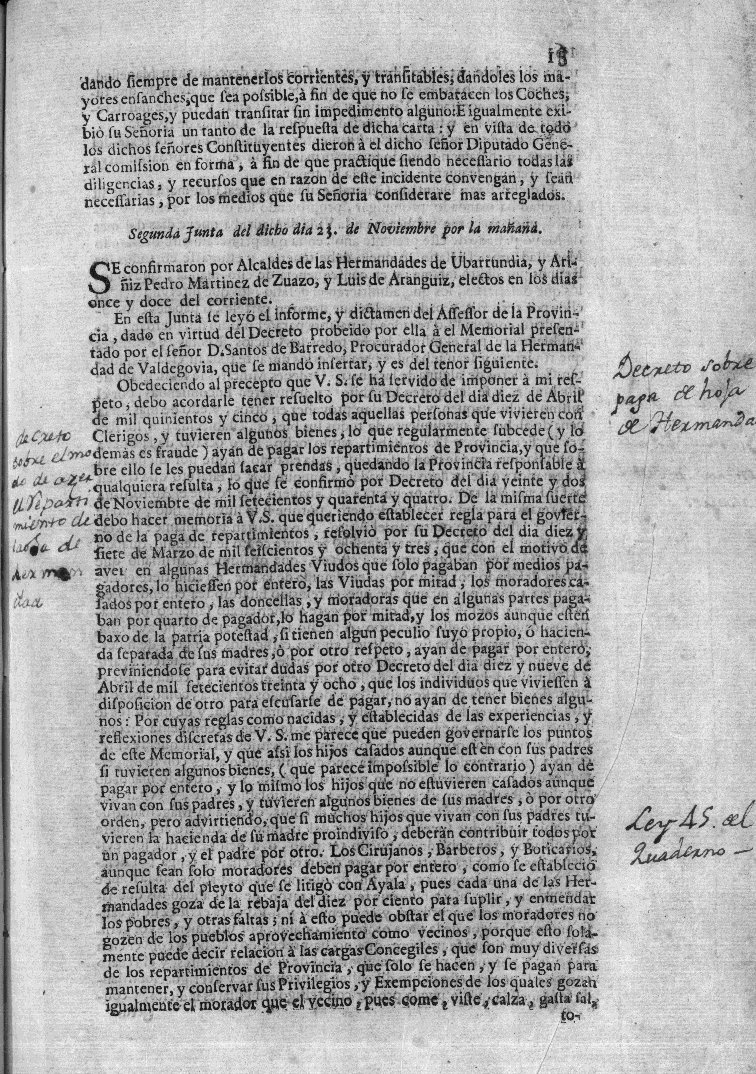 dando siempre de mantenerlos corrientes, y transitables; dandoles los ma-
yores ensanches, que sea possible, à fin de que no se embaracen los Coches,
y Carroages, y puedan transitar sin impedimento alguno: E igualmente exi-
biò su Señoria un tanto de la respuesta de dicha carta: y en vista de todo
los dichos señores Constituyentes dieron à el dicho señor Diputado Gene-
ral comission en forma, à fin de que practique siendo necessario todas las
diligencias, y recursos que en razon de este incidente convengan, y sean
necessarias, por los medios que su Señoria considerare mas arreglados.
Segunda Junta del dicho dia 23. de Noviembre por la mañana.
SE confirmaron por Alcaldes de las Hermandades de Ubarrundia, y Ari-
ñiz Pedro Martinez de Zuazo, y Luis de Aranguiz, electos en los dias
once y doce del corriente.
En esta Junta se leyò el informe, y dictamen del Assessor de la Provin-
cia, dado en virtud del Decreto probeido por ella à el Memorial presen-
tado por el señor D. Santos de Barredo, Procurador General de la Herman-
dad de Valdegovia, que se mandò insertar, y es del tenor siguiente.
Obedeciendo al precepto que V. S. se ha servido de imponer à mi res-
peto, debo acordarle tener resuelto por su Decreto del dia diez de Abril
de mil quinientos y cinco, que todas aquellas personas que vivieren con
Clerigos, y tuvieren algunos bienes, lo que regularmente subcede (y lo
demàs es fraude) ayan de pagar los repartimientos de Provincia, y que so-
bre ello se les puedan sacar prendas, quedando la Provincia responsable à
qualquiera resulta, lo que se confirmò por Decreto del dia veinte y dos
de Noviembre de mil setecientos y quarenta y quatro. De la misma suerte
debo hacer memoria à V.S. que queriendo establecer regla para el govier-
no de la paga de repartimientos, resolviò por su Decreto del dia diez y
siete de Marzo de mil seiscientos y ochenta y tres, que con el motivo de
aver en algunas Hermandades Viudos que solo pagaban por medios pa-
gadores, lo hiciessen por entero, las Viudas por mitad, los moradores ca-
sados por entero, las doncellas, y moradoras que en algunas partes paga-
ban por quarto de pagador, lo hagan por mitad, y los mozos aunque estèn
baxo de la patria potestad, si tienen algun peculio suyo propio, ò hacien-
da separada de sus madres, ò por otro respeto, ayan de pagar por entero;
previniendose para evitar dudas por otro Decreto del dia diez y nueve de
Abril de mil setecientos treinta y ocho, que los individuos que viviessen à
disposicion de otro para escusarse de pagar, no ayan de tener bienes algu-
nos: Por cuyas reglas como nacidas, y establecidas de las experiencias, y
reflexiones discretas de V. S. me parece que pueden governarse los puntos
de este Memorial, y que assi los hijos casados aunque estèn con sus padres
si tuvieren algunos bienes, (que parece impossible lo contrario) ayan de
pagar por entero, y lo mismo los hijos que no estuvieren casados aunque
vivan con sus padres, y tuvieren algunos bienes de sus madres, ò por otro
orden, pero advirtiendo, que si muchos hijos que vivan con sus padres tu-
vieren la hacienda de su madre proindiviso, deberàn contribuir todos por
un pagador, y el padre por otro. Los Cirujanos, Barberos, y Boticarios,
aunque sean solo moradores deben pagar por entero, como se estableciò
de resulta del pleyto que se litigò con Ayala, pues cada una de las Her-
mandades goza de la rebaja del diez por ciento para suplir, y enmendar
los pobres, y otras faltas; ni à esto puede obstar el que los moradores no
gozen de los pueblos aprovechamiento como vecinos, porque esto sola-
mente puede decir relacion à las cargas Concegiles, que son muy diversas
de los repartimientos de Provincia, que solo se hacen, y se pagan para
mantener, y conservar sus Privilegios, y Exempciones de los quales gozan
igualmente el morador que el vecino, pues come, viste, calza, gasta sal,
to-
decreto
sobre el mo
do de azer
el reparti
miento de
de
herman
dad
Decreto sobre
paga de hoja
de Hermanda
Ley 45. del
Quaderno